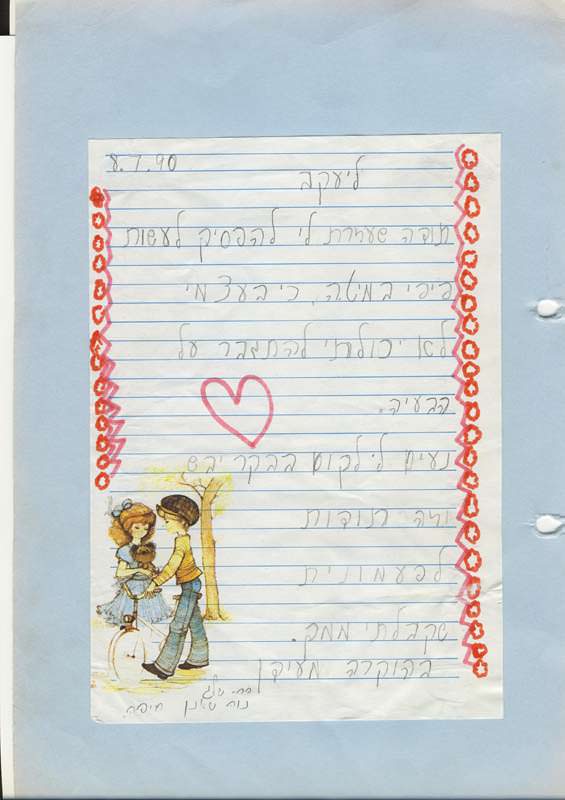 8.7.90
ליעקב
תודה שעזרת לי להפסיק לעשות
פיפי במיטה, כי בעצמי
לא יכולתי להתגבר על
הבעיה.
נעים לי לקום בבקר יבש
וזה תודות
לפעמונית
שקבלתי ממך.
בהוקרה
חיפה